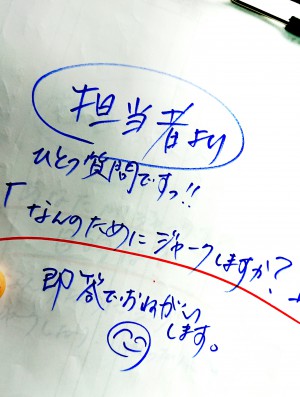 担当者より
ひとつ質問ですっ!!
「なんのために ジャークしますか?
即答でおねがい
します。